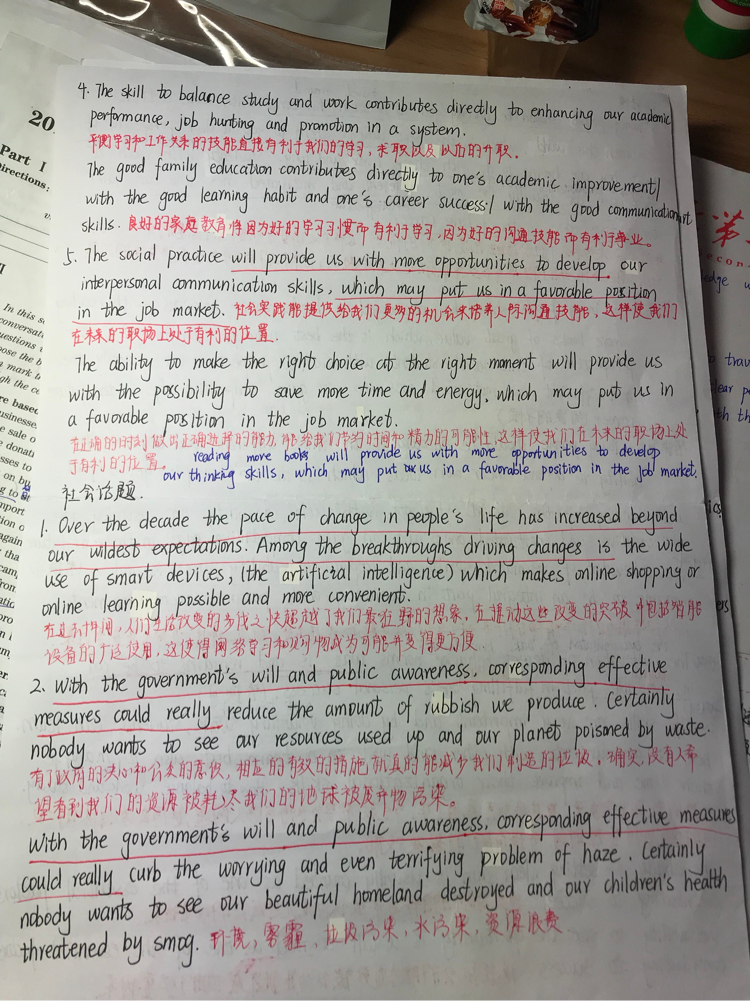 4. The skill to balance study and work contributes directly to enhancing our academic
performance, job hunting and promotion in a system.
平衡学习和工作关系的技能直接有利于我们的学习,求职以及以后的升职。
The good family education contributes directly to one's academic improvement/
with the good learning habit and one's career success/ with the good communication
skills. 良好的家庭教育将因为好的学习习惯而有利于学习,因为好的沟通技能而有利于事业。
5. The social practice will provide us with more opportunities to develop our
interpersonal communication skills, which may put us in a favorable position
in the job market. 社会实践能提供给我们更多的机会来培养人际沟通技能,这样使我们
在未来的职场上处于有利的位置.
The ability to make the right choice at the right moment will provide us
with the possibility to save more time and energy, which may put us in
a favorable position in the job market.
在正确的时刻做出正确选择的能力,能给我们节约时间和精力的可能性,这样使我们在未来的职场上处
于有利的位置。 reading more books will provide us with more opportunities to develop
our thinking skills, which may put us in a favorable position in the job market.
社会话题.
1. Over the decade the pace of change in people's life has increased beyond
our wildest expectations. Among the breakthroughs driving changes is the wide
use of smart devices, (the artificial intelligence) which makes online shopping or
online learning possible and more convenient.
在近十年间,人们生活改变的步伐之快超越了我们最狂野的想象,在推动这些改变的突破中包括智能
设备的广泛使用,这使得网络学习和购物成为可能并变得更方便.
2. With the government's will and public awareness, corresponding effective
measures could really reduce the amount of rubbish we produce. Certainly
nobody wants to see our resources used up and our planet poisoned by waste.
有了政府的决心和公众的意识,相应的有效的措施就真的能减少我们制造的垃圾,确实,没有人希
望看到我们的资源被耗尽我们的地球被废弃物污染。
With the government's will and public awareness, corresponding effective measures
could really curb the worrying and even terrifying problem of haze. Certainly
nobody wants to see our beautiful homeland destroyed and our children's health
threatened by smog. 环境,雾霾,垃圾污染,水污染,资源浪费
20
Part I
Directions:
In this s